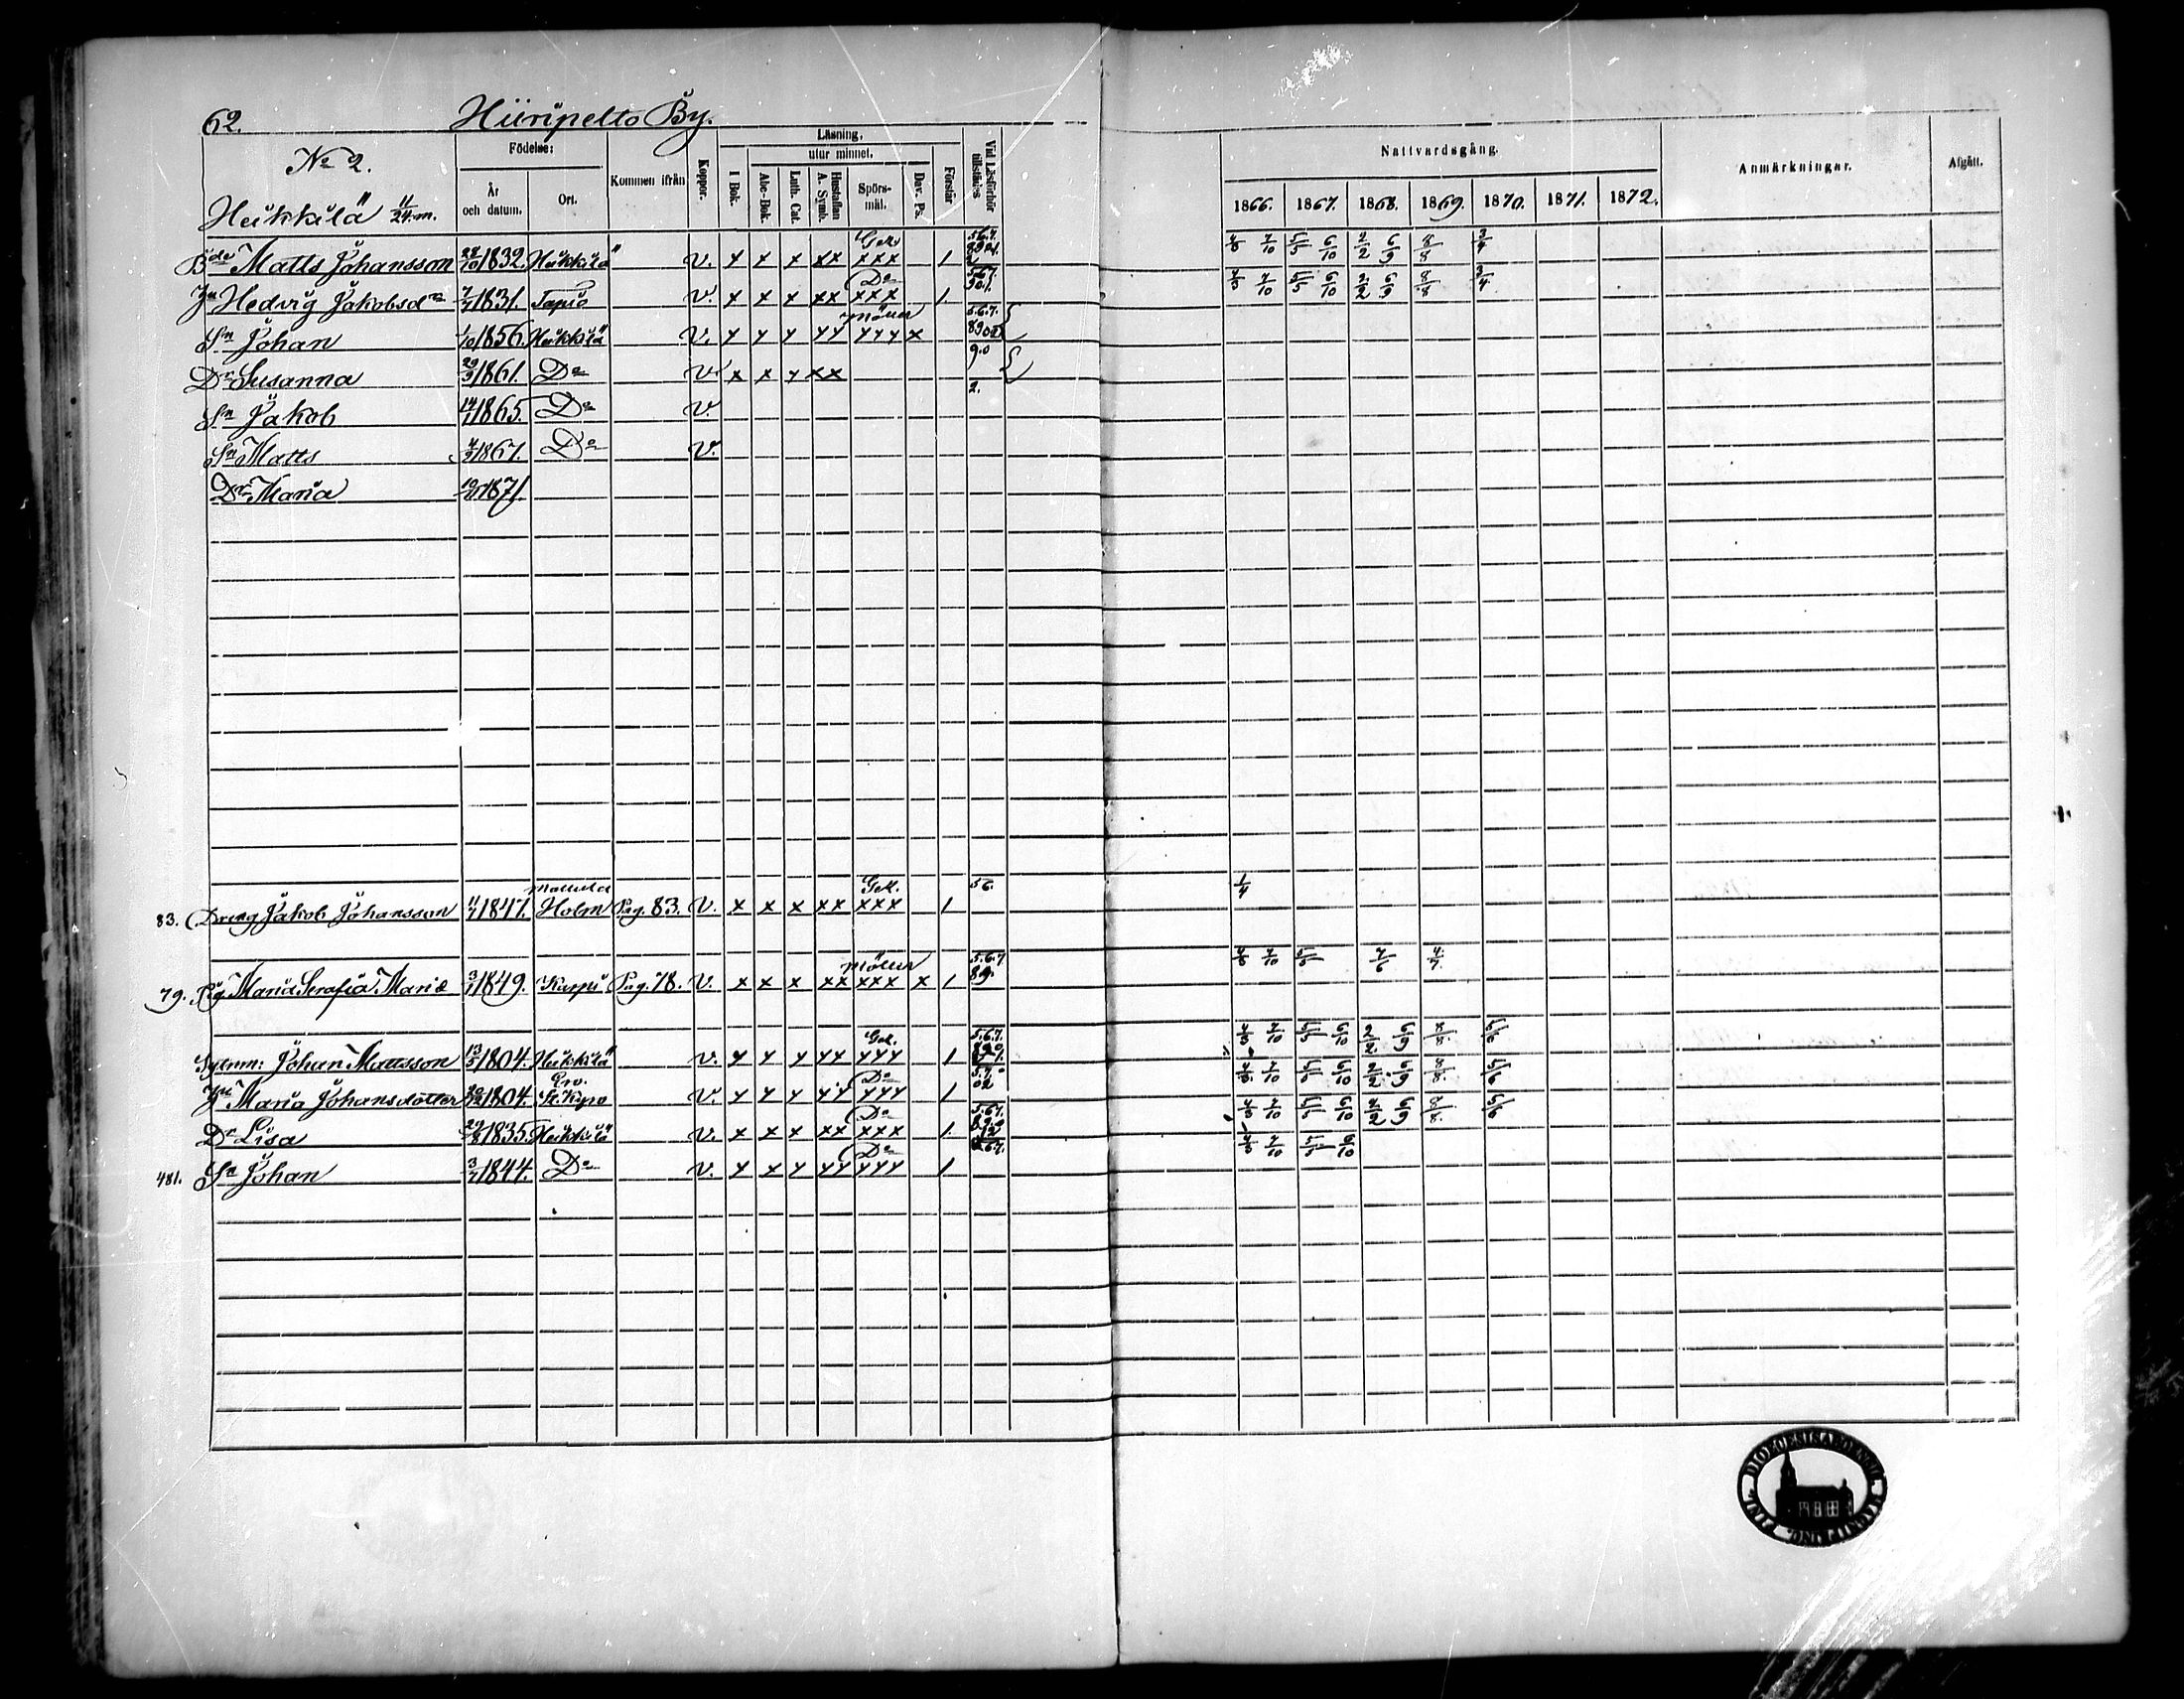 62. Hiiripelto By.
No 2.
Heikkilä 11/24 m.
Födelse:
År och datum.
Ort.
Kommen ifrån
Koppor.
Läsning,
utur minnet.
I Bok.
Abc-Bok.
Luth. Cat.
Hustaflan A. Symb.
Spörs-mål.
Dav. Ps.
Förstår
Vid Läsförhör tillstädes
Nattvardsgång.
1866. 1867. 1868. 1869. 1870. 1871. 1872.
Anmärkningar.
Afgått.
Bde Matts Johansson 22/10 1832. Heikkilä V. x x x xx xxx 1 4/3 7/10 5/5 6/10 2/2 6/9 8/8 3/4
Hu Hedvig Jakobsdr 7/7 1831. Tapio V. x x x xx Do xxx 1 4/3 7/10 5/5 6/10 2/2 6/9 8/8 3/4
Sn Johan 1/10 1856. Heikkilä V. x x x xx xxx x 5.6.7.
Dr Susanna 29/9 1861. Do V. x x x xx 9.0
Sn Jakob 14/7 1865. Do V. 2.
Sn Matts 4/9 1867. Do V.
Dr Maria 1871.
83. Dreng Jakob Johansson 11/7 1847. Holm Pag. 83. V. x x x xx xxx 1 56. 1/4
79. Pig. Maria Serafia Mariæ 3/7 1849. Karpi Pag. 78. V. x x x xx xxx x 1 5.6.7 89. 4/3 7/10 5/5 7/6 4/7.
Sytnm: Johan Mattsson 13/5 1804. Heikkilä V. x x x xx xxx 1 5.6.7. 4/3 7/10 5/5 6/10 2/2 6/9 8/8. 5/6
Hu Maria Johansdotter 1804. St. Kyro V. x x x xx Do xxx 1 4/3 7/10 5/5 6/10 2/2 6/9 8/8. 5/6
Dr Lisa 1835. Heikkilä V. x x x xx Do xxx 1 5.6.7. 4/3 7/10 5/5 6/10 2/2 6/9 8/8. 5/6
481. Sn Johan 3/7 1844. Do V. x x x xx Do xxx 1 4/3 7/10 5/5 6/10